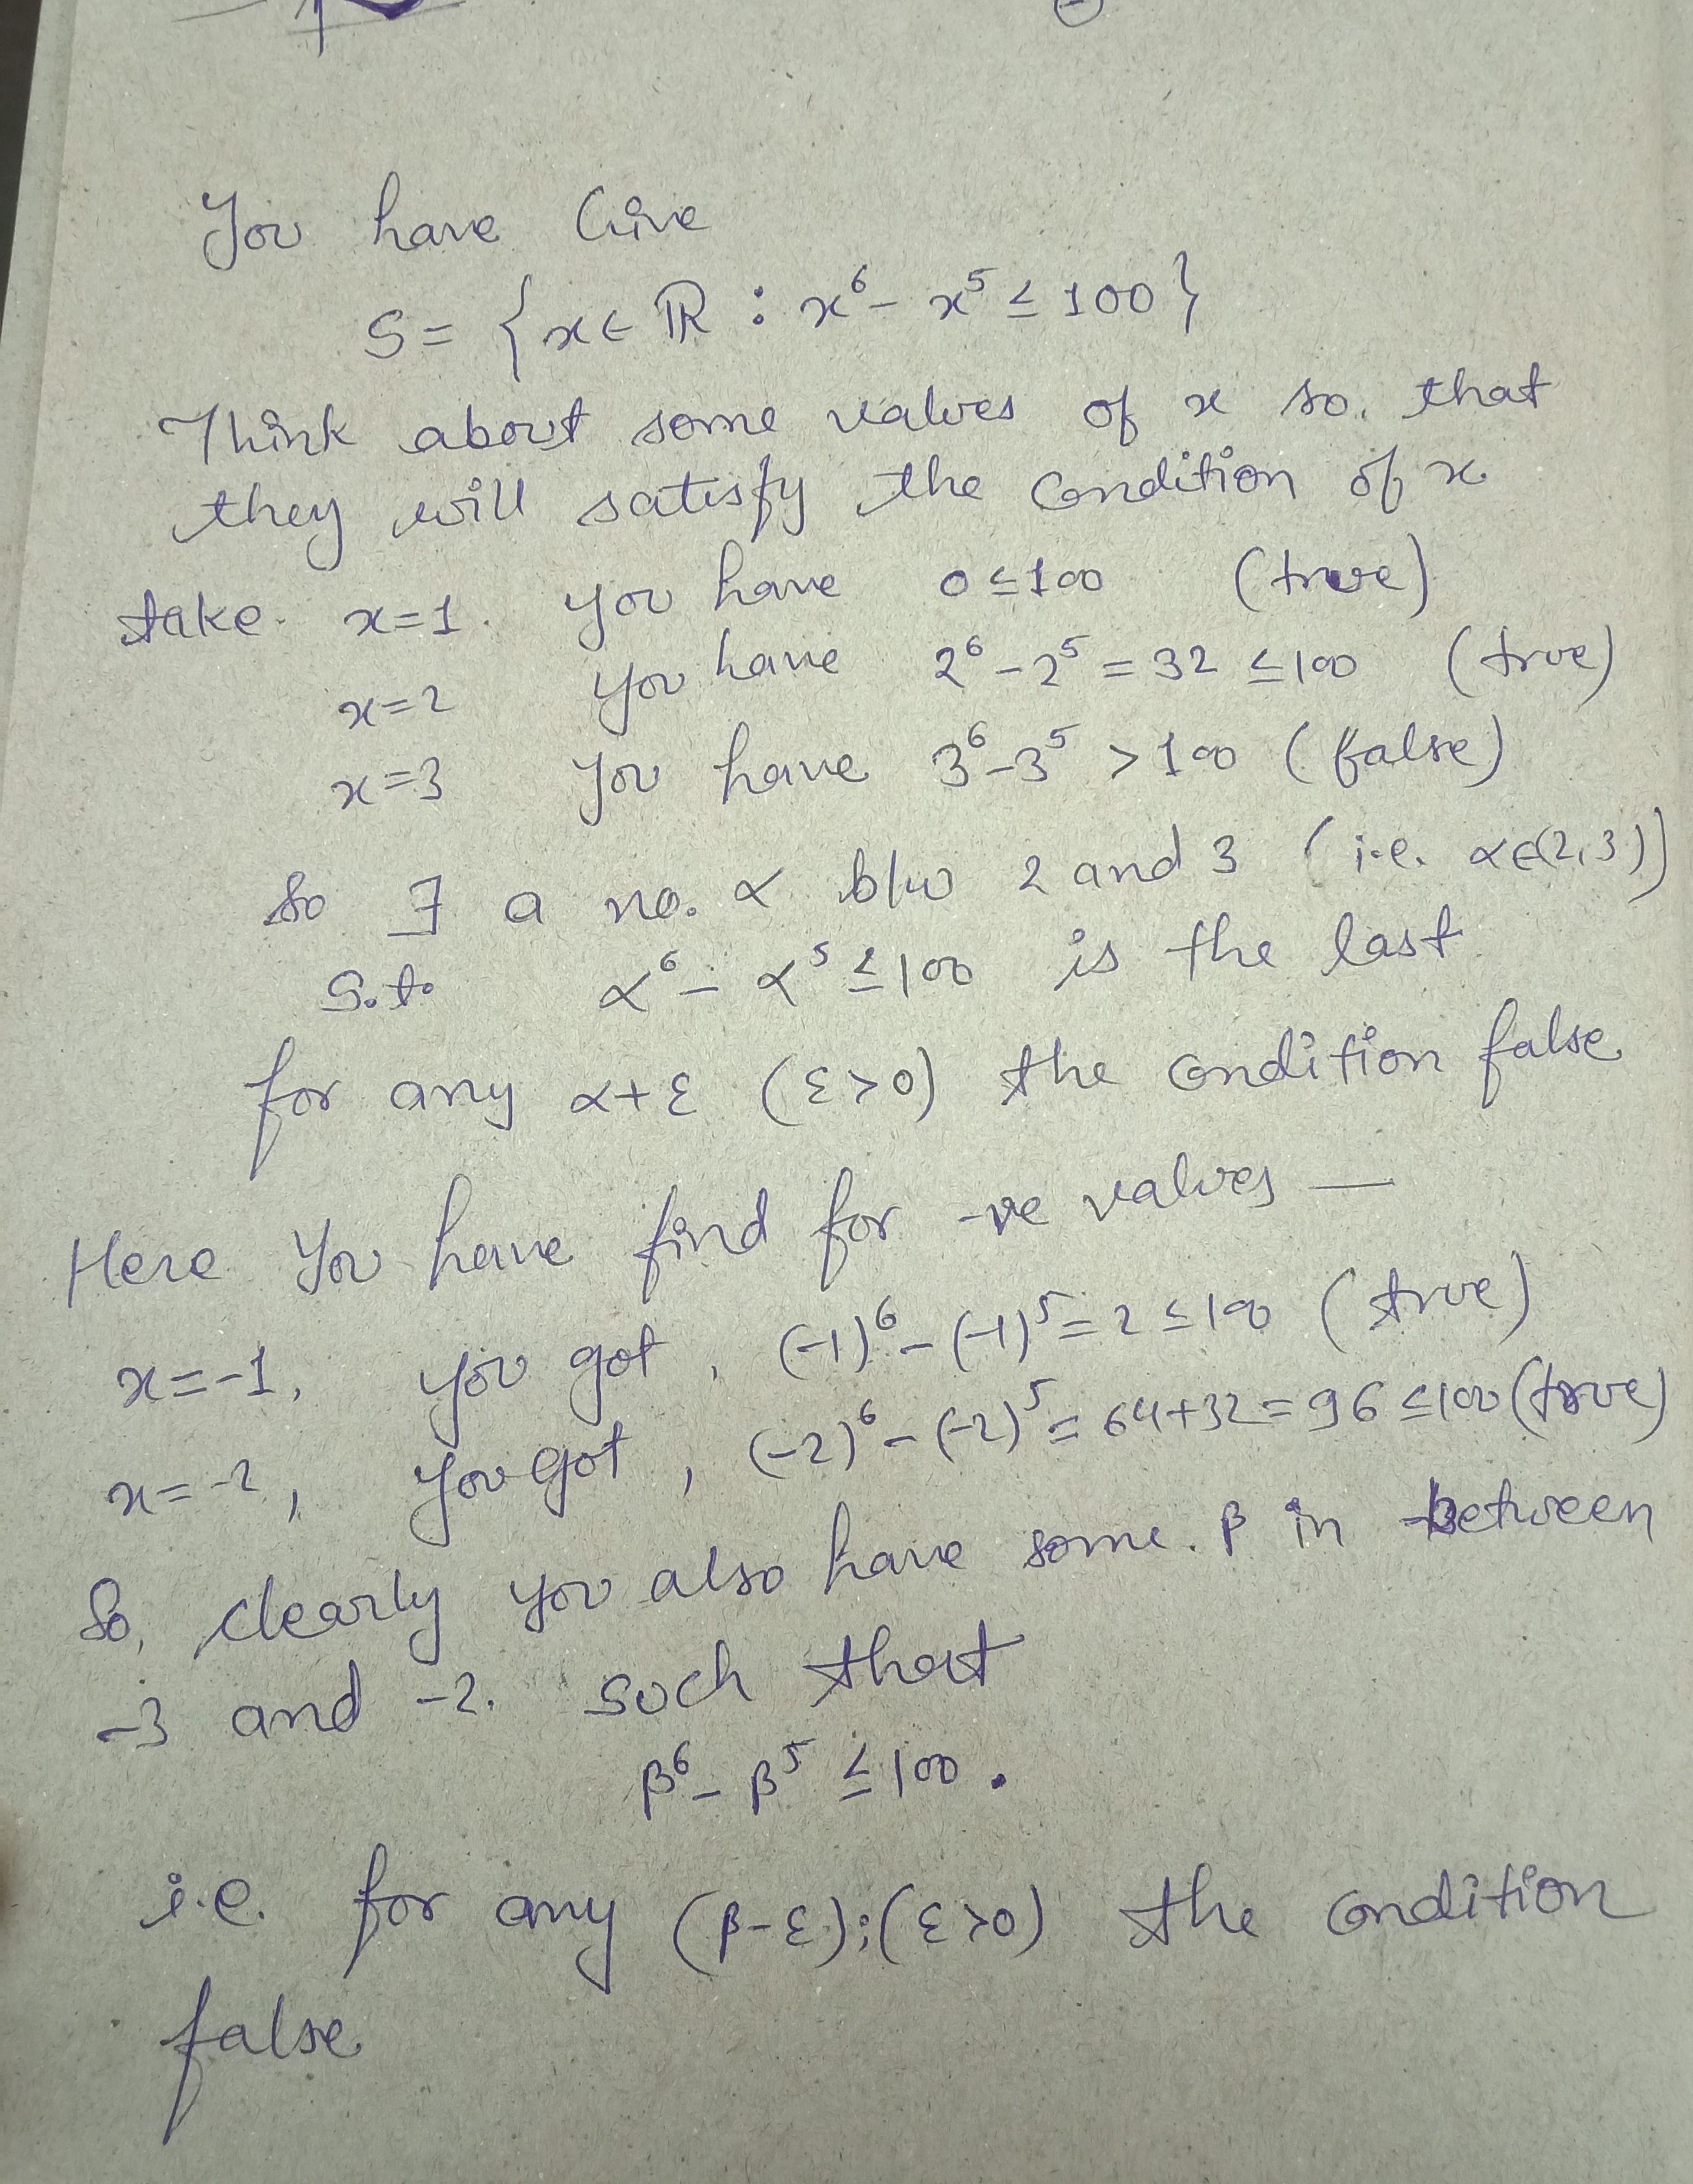 You have Give
S = {x ∈ ℝ : x⁶ - x⁵ ≤ 100}
Think about some values of x so. that
they will satisfy the condition of x.
take. x=1. you have 0 ≤ 100 (true)
x=2 you have 2⁶ - 2⁵ = 32 ≤ 100 (true)
x=3 you have 3⁶ - 3⁵ > 100 (false)
So ∃ a no. α b/w 2 and 3 (i.e. α∈(2,3))
S.t. α⁶ - α⁵ ≤ 100 is the last
for any α+ε (ε>0) the condition false
Here You have find for -ve values —
x=-1, you got, (-1)⁶ - (-1)⁵ = 2 ≤ 100 (true)
x=-2, you got, (-2)⁶ - (-2)⁵ = 64+32 = 96 ≤ 100 (true)
So, clearly you also have some. β in between
-3 and -2. such that
β⁶ - β⁵ ≤ 100.
i.e. for any (β-ε);(ε>0) the condition
false